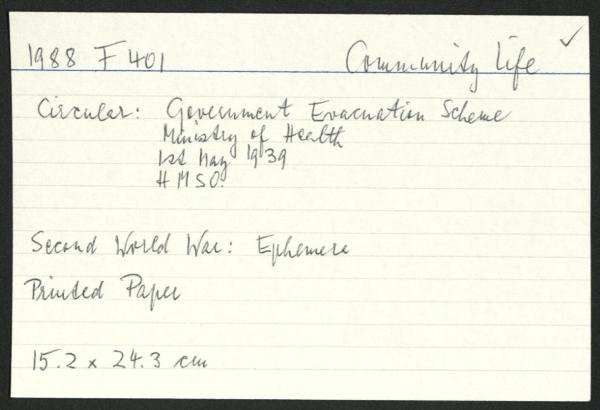 1988 F 401 Community Life ✓
Circular: Government Evacuation Scheme
Ministry of Health
1st May 1939
HMSO.
Second World War: Ephemera
Printed Paper
15.2 x 24.3 cm